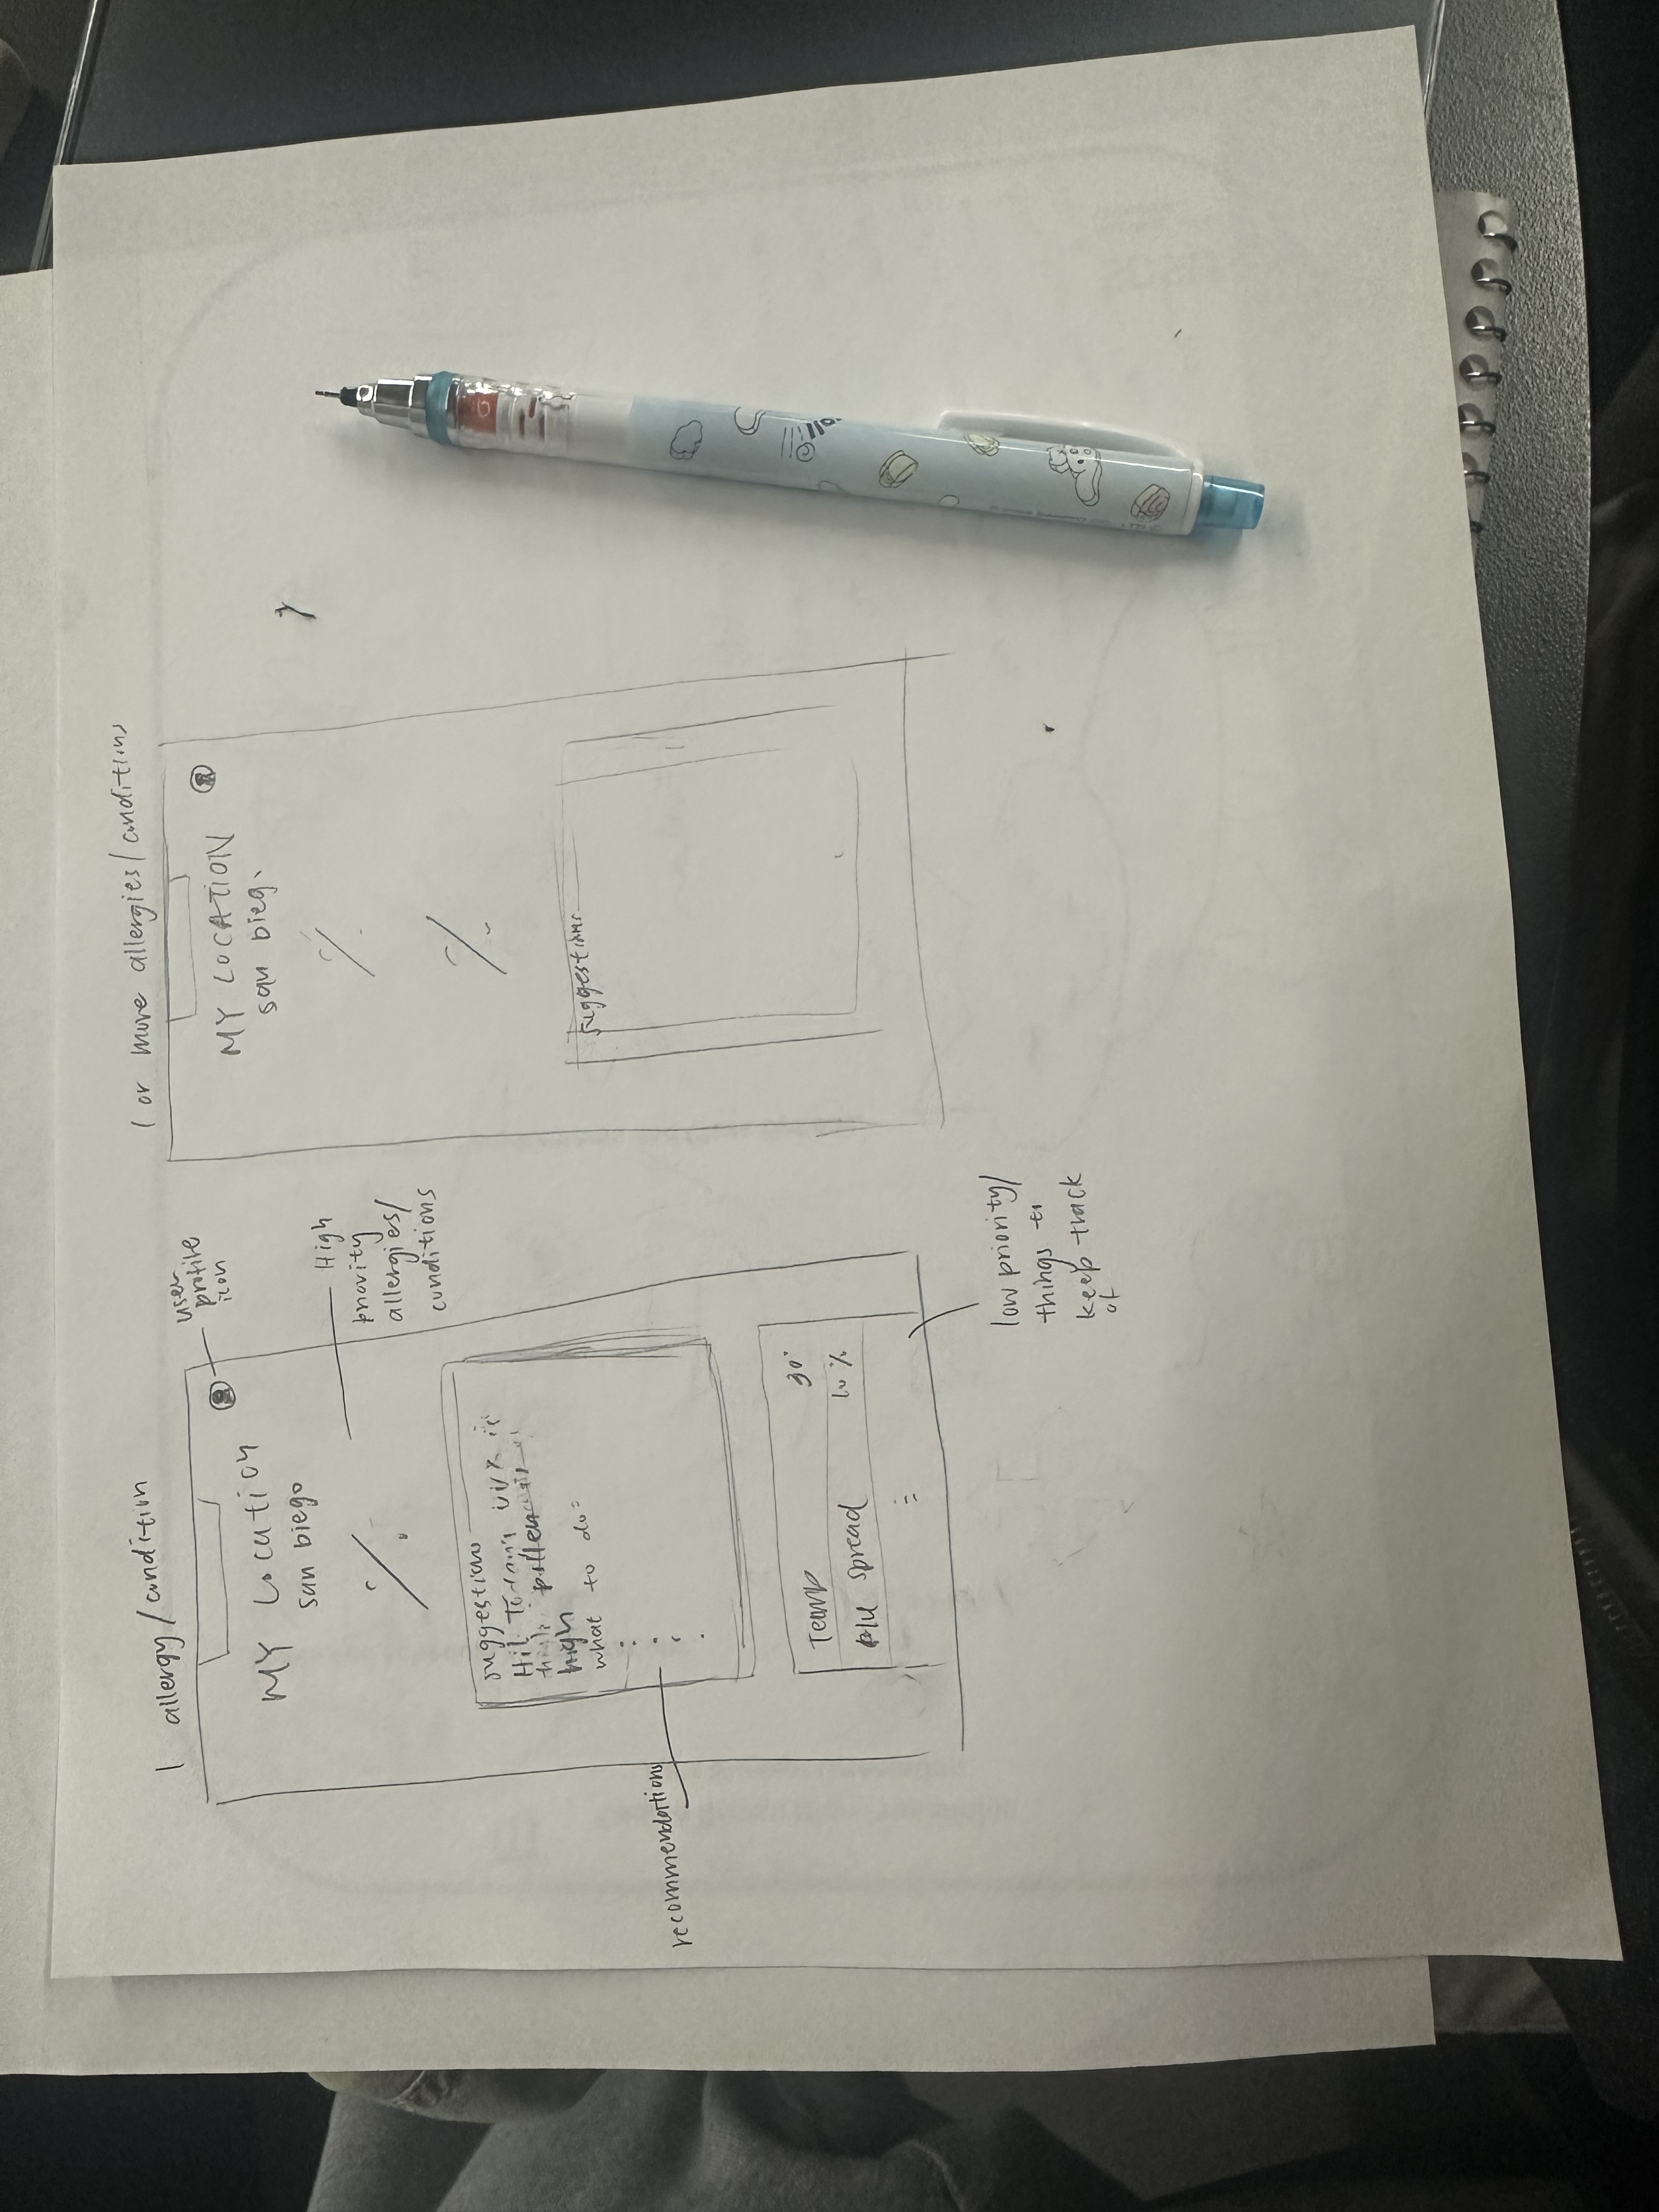 1 allergy/condition
user
profile
icon
MY Location
san Diego
%
High
priority
allergies/
conditions
suggestions
Hi! Today's
high pollen
high
what to do:
recommendations
Temp 30°
flu spread 10%
low priority/
things to
keep track
of
1 or more allergies/conditions
MY LOCATION
san Dieg.
%
%
suggestions